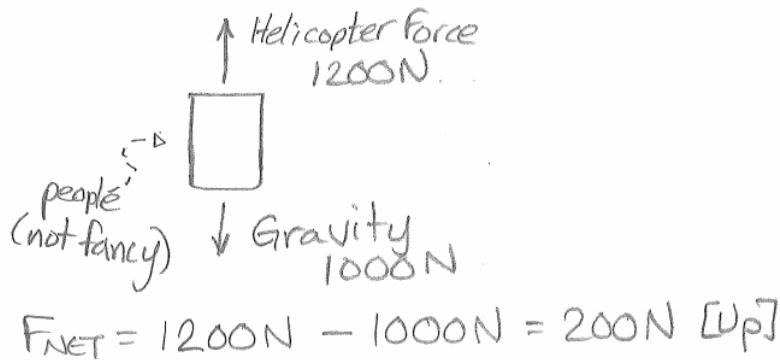 Helicopter Force
1200N.
people
(not fancy)
Gravity
1000N
FNET = 1200N - 1000N = 200N [Up]